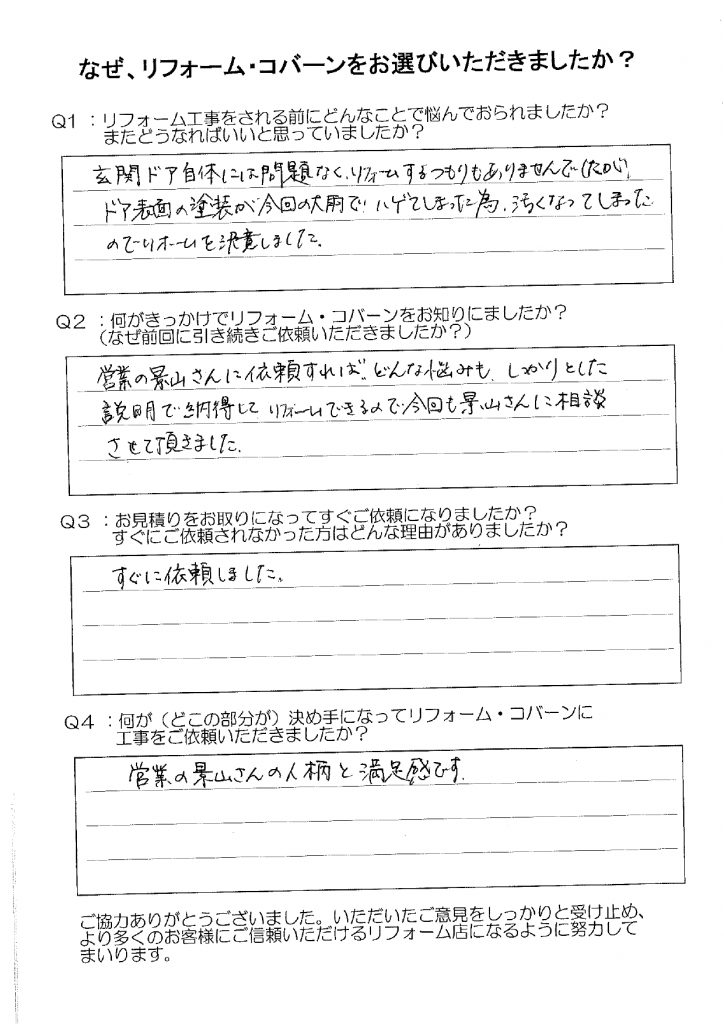 なぜ、リフォーム・コバーンをお選びいただきましたか？
Q1 ：リフォーム工事をされる前にどんなことで悩んでおられましたか？
またどうなればいいと思っていましたか？
玄関ドア自体には問題なく、リフォームするつもりもありませんでしたが、
ドア表面の塗装が今回の大雨でハゲてしまった為、汚くなってしまった
のでリホームを決意しました。
Q2 ：何がきっかけでリフォーム・コバーンをお知りにましたか？
（なぜ前回に引き続きご依頼いただきましたか？）
営業の景山さんに依頼すれば、どんな悩みも、しっかりとした
説明で納得してリフォームできるので今回も景山さんに相談
させて頂きました。
Q3 ：お見積りをお取りになってすぐご依頼になりましたか？
すぐにご依頼されなかった方はどんな理由がありましたか？
すぐに依頼しました。
Q4 ：何が（どこの部分が）決め手になってリフォーム・コバーンに
工事をご依頼いただきましたか？
営業の景山さんの人柄と満足感です。
ご協力ありがとうございました。いただいたご意見をしっかりと受け止め、
より多くのお客様にご信頼いただけるリフォーム店になるように努力して
まいります。